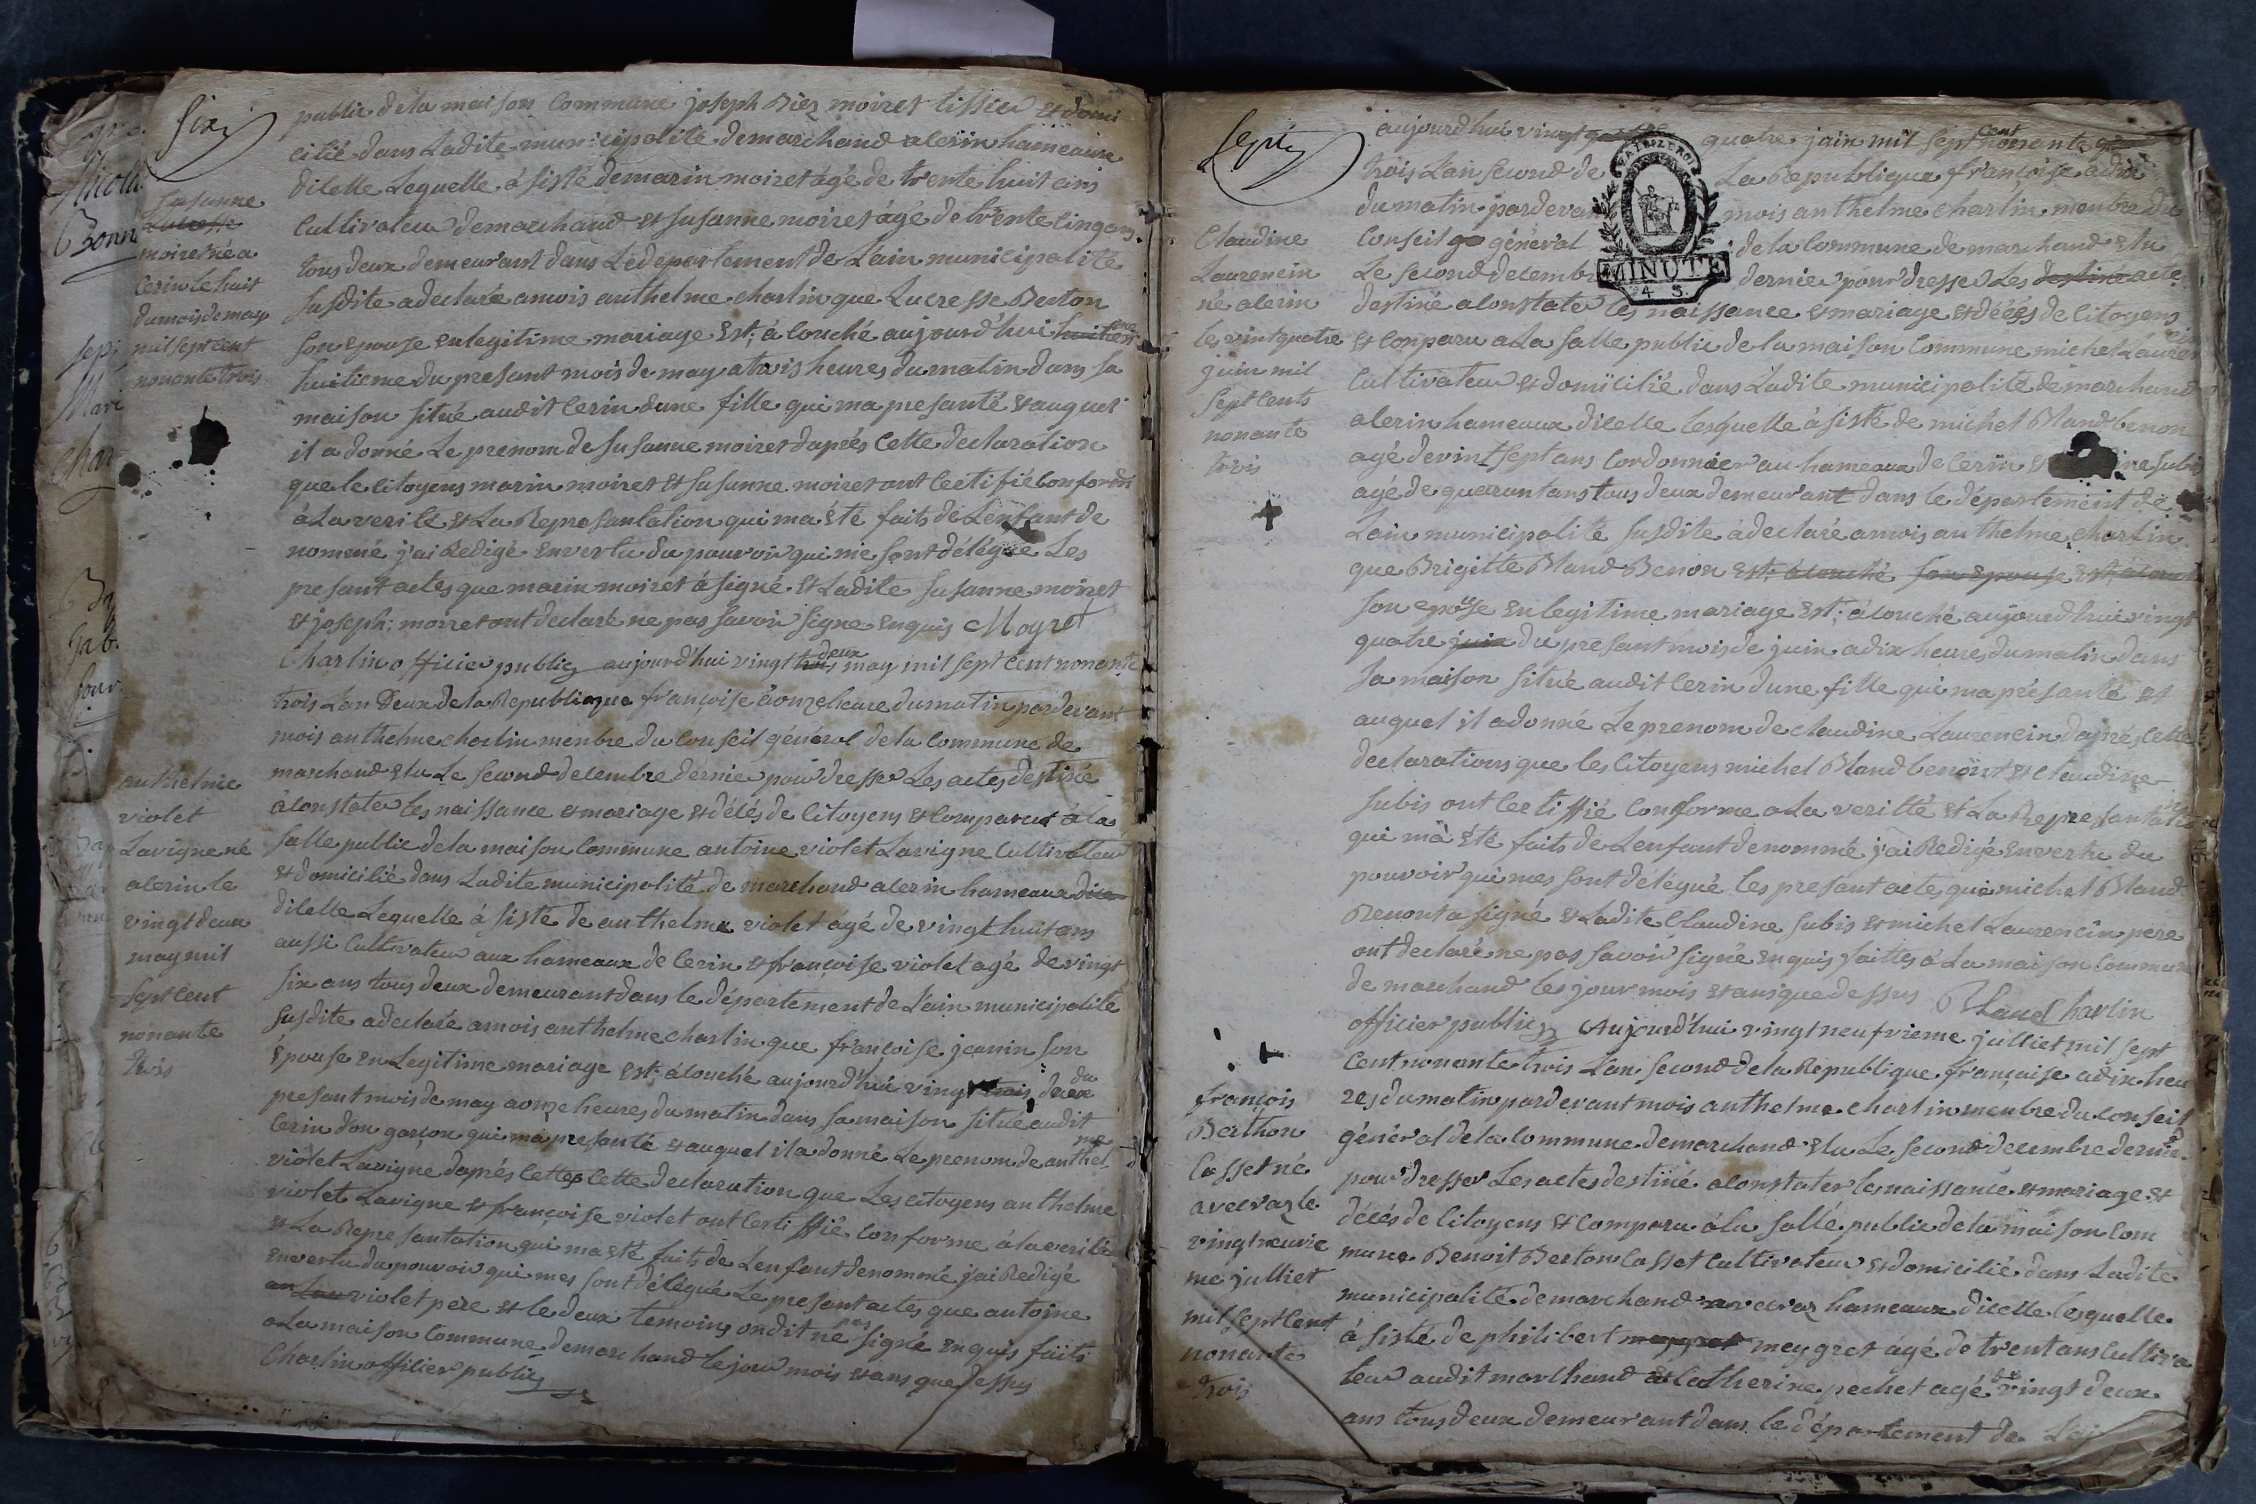 six
susanne
Lucresse
moiret né a
Cerin le huit
du mois de may
mil sept cent
nonante trois
public dela maison Commune joseph moiret tissieu et domi
cilié dans Ladite municipalité demarchand acerin hameaux
dicelle Lequelle à sisté demarin moiret agé de trente huit ans
Cultivateur demarchand et susanne moiret agé de trente cinq ans
tous deux demeurant dans Le departement de Lain municipalité
susdite a declaré amois anthelme charlin que Lucresse Berton
son epouse en legitime mariage est, à couché aujourd'hui
huitieme du presant mois de may a trois heures du matin dans sa
maison situé audit Cerin dune fille qui ma presanté et auquel
il a donné Le prenom de susanne moiret daprés Cette declaration
que le Citoyens marin moiret et susanne moiret ont Certifié Conforme
à La verité et La Represantation qui ma été faits de Lenfant de
nommé j'ai Redigé en vertu du pouvoir qui me sont délégué Les
presant actes que marin moiret à signé et Ladite susanne moiret
et joseph moiret ont declaré ne pas savoir signe enquis Moyret
Charlin officier public aujourd'hui vingt trois deux may mil sept cent nonante
anthelme
violet
Lavigne né
acerin le
vingt deux
may mil
sept cent
nonante
trois
trois Lan Deux de la Republique françoise à onze heure du matin pardevant
mois anthelme charlin menbre du Conseil général de la Commune de
marchand elu Le second decembre dernier pour dresser Les actes destiné
à Constater les naissance et mariage et décés de Citoyens et Comparut à la
salle public dela maison Commune antoine violet Lavigne Cultivateur
et domicilié dans Ladite municipalité de marchand acerin hameaux
dicelle Lequelle à sisté de anthelme violet agé de vingt huit ans
aussi Cultivateur aux hameaux de Cerin et françoise violet agé de vingt
six ans tous deux demeurant dans le département de Lain municipalité
susdite adeclaré amois anthelme charlin que françoise jeanin son
épouse en Legitime mariage est, à couché aujourd'hui vingt trois deux du
presant mois de may aonze heures du matin dans sa maison situé audit
Cerin d'un garçon qui ma presanté et auquel il a donné Le prenom de anthelme
violet Lavigne daprés Cette declaration que Les Citoyens anthelme
violet Lavigne et françoise violet ont Certiffié Conforme à la verité
et La Represantation qui ma été faits de Lenfant denommé j'ai Redigé
envertu du pouvoir qui mes sont délégué Le presant actes que antoine
violet pere et le deux temoins ondit ne pas signé enquis faits
a La maison Commune demarchand le jour mois et ans que dessus
Charlin officier public
sept
Claudine
Laurencin
né acerin
le vint quatre
juin mil
sept cents
nonante
trois
aujourd'hui vingt quatre juin mil sept cent nonante
trois Lan second de La Republique françoise adix
du matin pardevant mois anthelme charlin menbre du
Conseil général de la Commune de marchand elu
Le second decembre dernier pour dresser Les destiné acte
destiné a Constater les naissance et mariage et décés de Citoyens
et Conparu a La salle public de la maison Commune michel Laurencin
Cultivateur et domicilié dans Ladite municipalité de marchand
acerin hameaux dicelle lesquelle à sisté de michel Bland benon
agé de vint sept ans Cordonnier au hameaux de Cerin et subis
agé de quarant ans tous deux demeurant dans le département de
Lain municipalité susdite à declaré amois anthelme charlin
que Brigitte Bland Benon est à couché son epouse est à couché
son epouse en legitime mariage est, à couché aujourd'hui vingt
quatre juin du presant mois de juin adix heures du matin dans
sa maison situé audit Cerin dune fille qui ma présanté et
auquel il adonné Le prenom de Claudine Laurencin daprés Cette
declarations que les Citoyens michel Bland benont et Claudine
subis ont Certiffié Conforme a La verité et La Represantation
qui ma été faits de Lenfant denommé j'ai Redigé envertu du
pouvoir qui mes sont délégué les presant acte que michel Bland
Benont a signé et Ladite Claudine subis et michel Laurencin pere
ont declaré ne pas savoir signé enquis faittes à La maison Commune
de marchand les jour mois et ans que dessus Bland Charlin
officier public Aujourd'hui vingt neufvieme julliet mil sept
françois
Berthon
Casset né
avecraz le
vingt neuvie
me julliet
mil sept Cent
nonante
trois
Cent nonante trois Lan second de la Republique française adix heu
res du matin pardevant mois anthelme charlin menbre du Conseil
général de la Commune demarchand elu Le second decembre dernier
pour dresser Les actes destiné a Constater les naissance et mariage et
décés de Citoyens et Comparu à la salle public de la maison Com
mune Benoit Berton Casset Cultivateur et domicilié dans Ladite
municipalité demarchand avecraz hameaux dicelle lesquelle
à sisté de philibert meygret agé de trent ans Cultiva
teur audit marchand et Catherine pechet agé de vingt deux
ans tous deux demeurant dans le département de Lain
MINUTE
4 S.